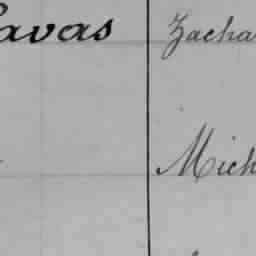 avas Zacha
Mich